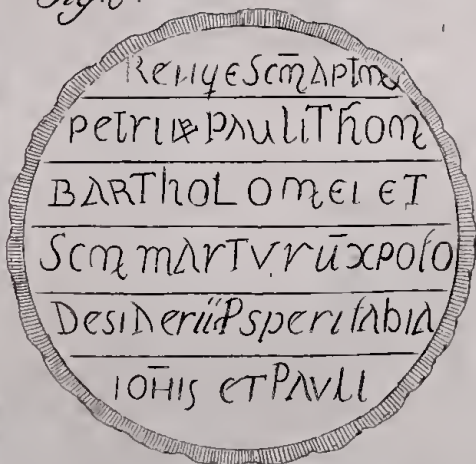 Reliqe Scm̄ Aptm̄
petri & pAuliThom
BARTholomei et
Scm mArTVrū xpofo
Desiderii Psperi fAbiA
IOH̄IS ET PAVLI